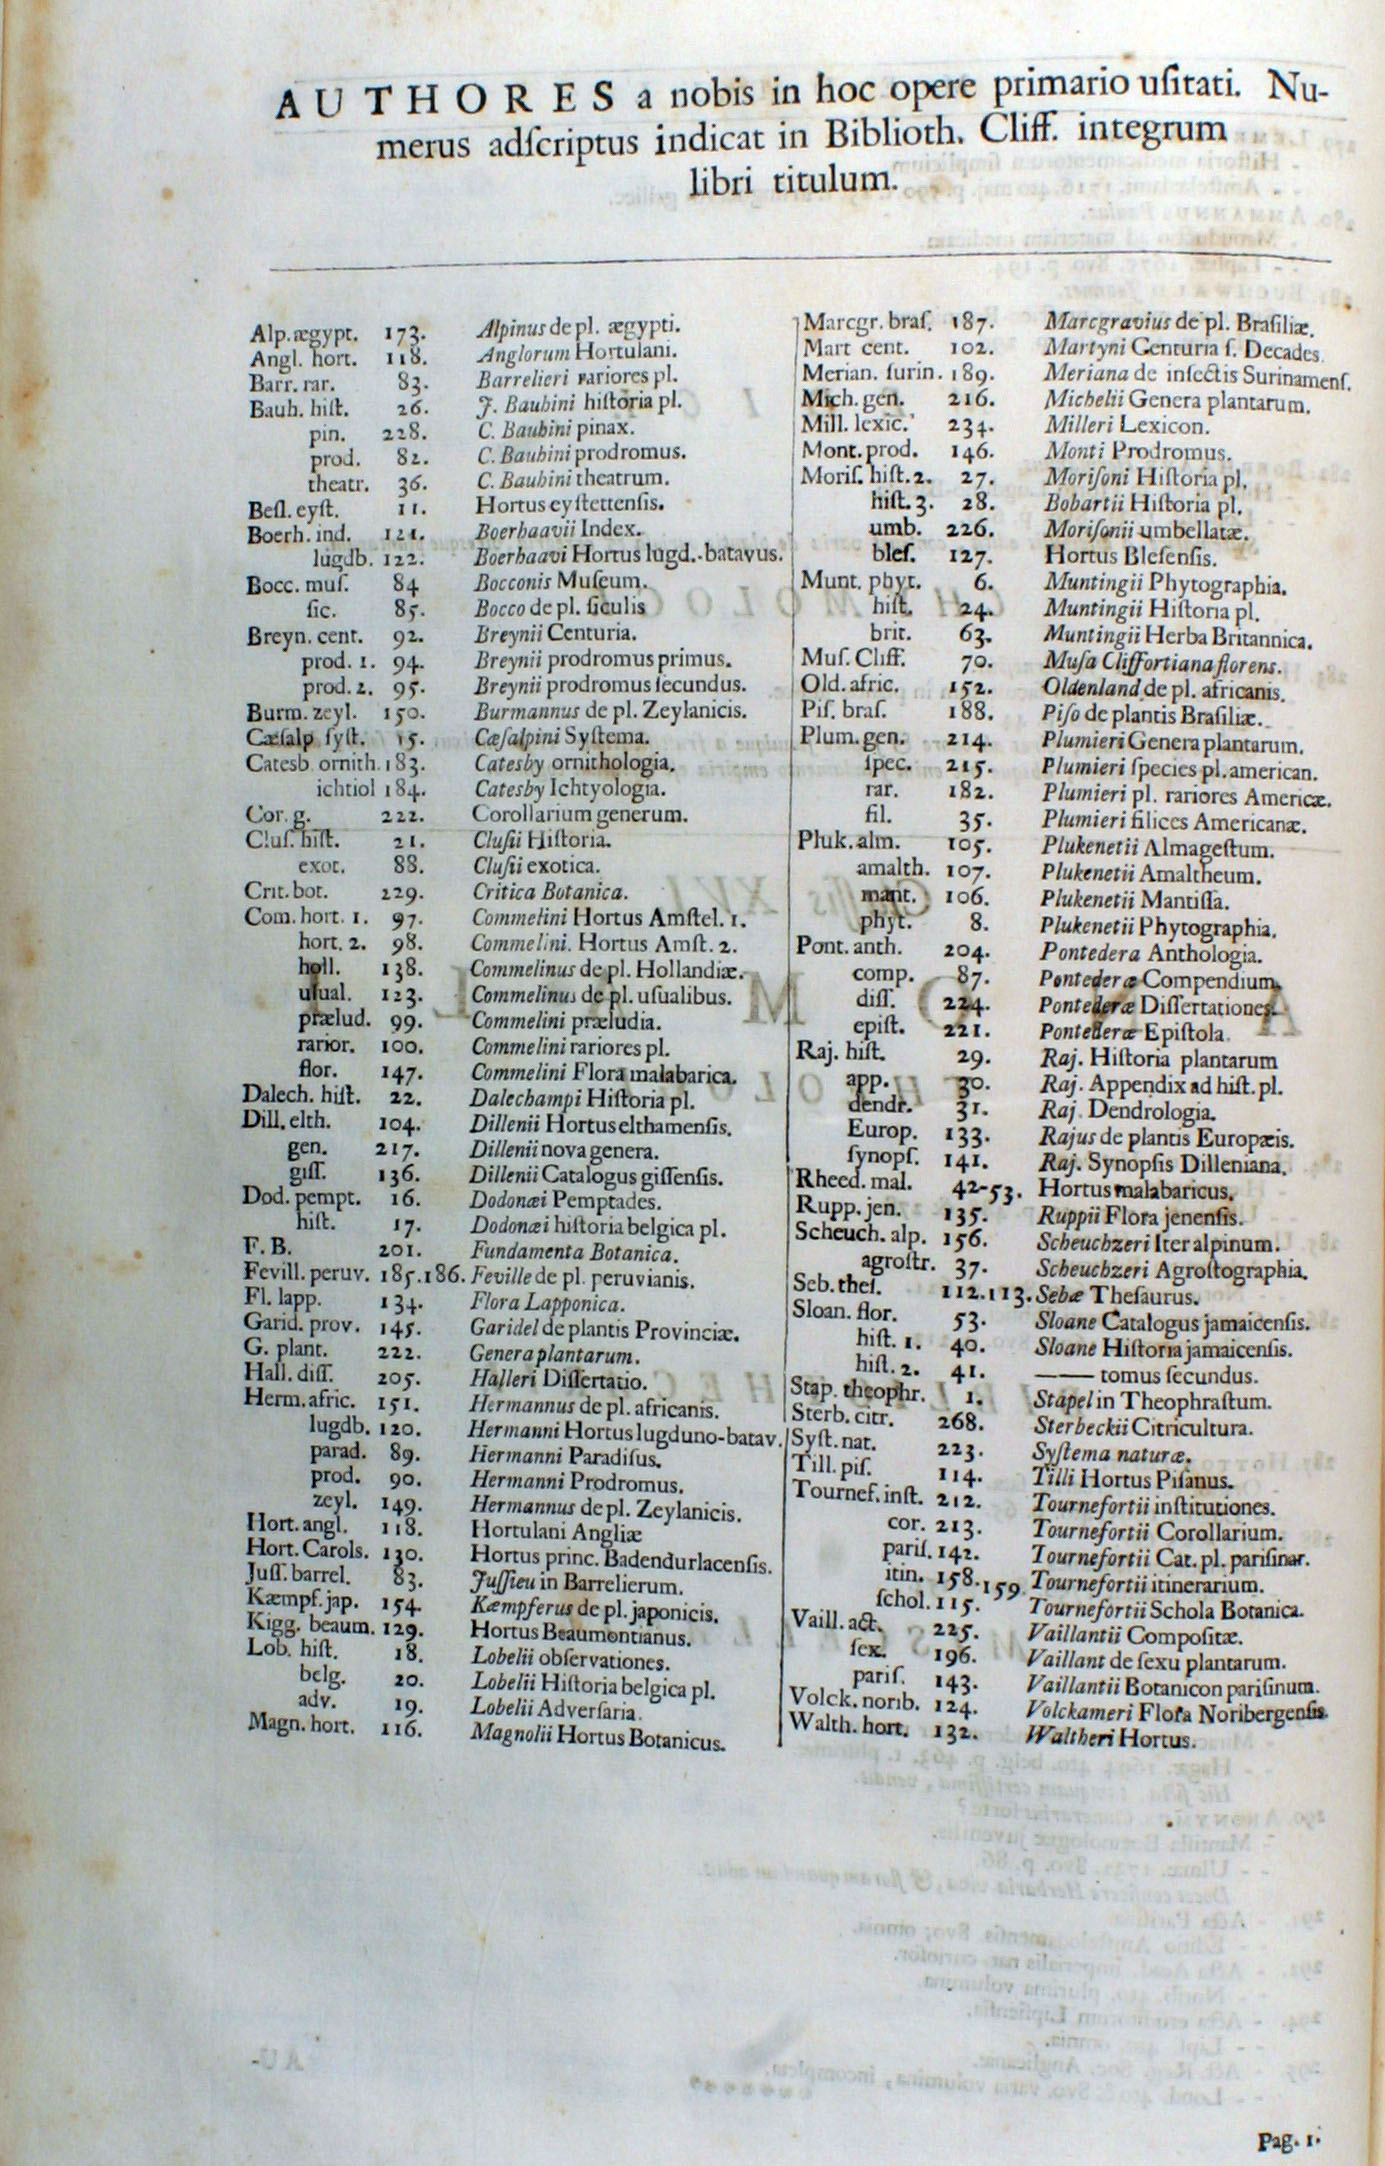 AUTHORES a nobis in hoc opere primario uſitati. Nu-
merus adſcriptus indicat in Biblioth. Cliff. integrum
libri titulum.
Alp. ægypt. 173. Alpinus de pl. ægypti.
Angl. hort. 118. Anglorum Hortulani.
Barr. rar. 83. Barrelieri rariores pl.
Bauh. hiſt. 26. J. Bauhini hiſtoria pl.
pin. 228. C. Bauhini pinax.
prod. 82. C. Bauhini prodromus.
theatr. 36. C. Bauhini theatrum.
Beſl. eyſt. 11. Hortus eyſtettenſis.
Boerh. ind. 121. Boerhaavii Index.
lugdb. 122. Boerhaavi Hortus lugd.-batavus.
Bocc. muſ. 84 Bocconis Muſeum.
ſic. 85. Bocco de pl. ſiculis
Breyn. cent. 92. Breynii Centuria.
prod. 1. 94. Breynii prodromus primus.
prod. 2. 95. Breynii prodromus ſecundus.
Burm. zeyl. 150. Burmannus de pl. Zeylanicis.
Cæſalp ſyſt. 15. Cæſalpini Syſtema.
Catesb. ornith. 183. Catesby ornithologia.
ichtiol 184. Catesby Ichtyologia.
Cor. g. 222. Corollarium generum.
Cluſ. hiſt. 21. Cluſii Hiſtoria.
exot. 88. Cluſii exotica.
Crit. bot. 229. Critica Botanica.
Com. hort. 1. 97. Commelini Hortus Amſtel. 1.
hort. 2. 98. Commelini. Hortus Amſt. 2.
holl. 138. Commelinus de pl. Hollandiæ.
uſual. 123. Commelinus de pl. uſualibus.
prælud. 99. Commelini præludia.
rarior. 100. Commelini rariores pl.
flor. 147. Commelini Flora malabarica.
Dalech. hiſt. 22. Dalechampi Hiſtoria pl.
Dill. elth. 104. Dillenii Hortus elthamenſis.
gen. 217. Dillenii nova genera.
giſſ. 136. Dillenii Catalogus giſſenſis.
Dod. pempt. 16. Dodonæi Pemptades.
hiſt. 17. Dodonæi hiſtoria belgica pl.
F. B. 201. Fundamenta Botanica.
Fevill. peruv. 185.186. Feville de pl. peruvianis.
Fl. lapp. 134. Flora Lapponica.
Garid. prov. 145. Garidel de plantis Provinciæ.
G. plant. 222. Genera plantarum.
Hall. diſſ. 205. Halleri Diſſertatio.
Herm. afric. 151. Hermannus de pl. africanis.
lugdb. 120. Hermanni Hortus lugduno-batav.
parad. 89. Hermanni Paradiſus.
prod. 90. Hermanni Prodromus.
zeyl. 149. Hermannus de pl. Zeylanicis.
Hort. angl. 118. Hortulani Angliæ
Hort. Carols. 130. Hortus princ. Badendurlacenſis.
Juſſ. barrel. 83. Juſſieu in Barrelierum.
Kæmpf. jap. 154. Kæmpferus de pl. japonicis.
Kigg. beaum. 129. Hortus Beaumontianus.
Lob. hiſt. 18. Lobelii obſervationes.
belg. 20. Lobelii Hiſtoria belgica pl.
adv. 19. Lobelii Adverſaria.
Magn. hort. 116. Magnolii Hortus Botanicus.
Marcgr. braſ. 187. Marcgravius de pl. Braſiliæ.
Mart cent. 102. Martyni Centuria ſ. Decades.
Merian. ſurin. 189. Meriana de inſectis Surinamenſ.
Mich. gen. 216. Michelii Genera plantarum.
Mill. lexic. 234. Milleri Lexicon.
Mont. prod. 146. Monti Prodromus.
Moriſ. hiſt. 2. 27. Moriſoni Hiſtoria pl.
hiſt. 3. 28. Bobartii Hiſtoria pl.
umb. 226. Moriſonii umbellatæ.
bleſ. 127. Hortus Bleſenſis.
Munt. phyt. 6. Muntingii Phytographia.
hiſt. 24. Muntingii Hiſtoria pl.
brit. 63. Muntingii Herba Britannica.
Muſ. Cliff. 70. Muſa Cliffortiana florens.
Old. afric. 152. Oldenland de pl. africanis.
Piſ. braſ. 188. Piſo de plantis Braſiliæ.
Plum. gen. 214. Plumieri Genera plantarum.
ſpec. 215. Plumieri ſpecies pl. american.
rar. 182. Plumieri pl. rariores Americæ.
fil. 35. Plumieri filices Americanæ.
Pluk. alm. 105. Plukenetii Almageſtum.
amalth. 107. Plukenetii Amaltheum.
mant. 106. Plukenetii Mantiſſa.
phyt. 8. Plukenetii Phytographia.
Pont. anth. 204. Pontedera Anthologia.
comp. 87. Pontederæ Compendium.
diſſ. 224. Pontederæ Diſſertationes.
epiſt. 221. Pontederæ Epiſtola.
Raj. hiſt. 29. Raj. Hiſtoria plantarum
app. 30. Raj. Appendix ad hiſt. pl.
dendr. 31. Raj. Dendrologia.
Europ. 133. Rajus de plantis Europæis.
ſynopſ. 141. Raj. Synopſis Dilleniana.
Rheed. mal. 42-53. Hortus malabaricus.
Rupp. jen. 135. Ruppii Flora jenenſis.
Scheuch. alp. 156. Scheuchzeri Iter alpinum.
agroſtr. 37. Scheuchzeri Agroſtographia.
Seb. theſ. 112.113. Sebæ Theſaurus.
Sloan. flor. 53. Sloane Catalogus jamaicenſis.
hiſt. 1. 40. Sloane Hiſtoria jamaicenſis.
hiſt. 2. 41. —— tomus ſecundus.
Stap. theophr. 1. Stapel in Theophraſtum.
Sterb. citr. 268. Sterbeckii Citricultura.
Syſt. nat. 223. Syſtema naturæ.
Till. piſ. 114. Tilli Hortus Piſanus.
Tournef. inſt. 212. Tournefortii inſtitutiones.
cor. 213. Tournefortii Corollarium.
pariſ. 142. Tournefortii Cat. pl. pariſinar.
itin. 158.159. Tournefortii itinerarium.
ſchol. 115. Tournefortii Schola Botanica.
Vaill. act. 225. Vaillantii Compoſitæ.
ſex. 196. Vaillant de ſexu plantarum.
pariſ. 143. Vaillantii Botanicon pariſinum.
Volck. norib. 124. Volckameri Flora Noribergenſis.
Walth. hort. 132. Waltheri Hortus.
Pag. 1.